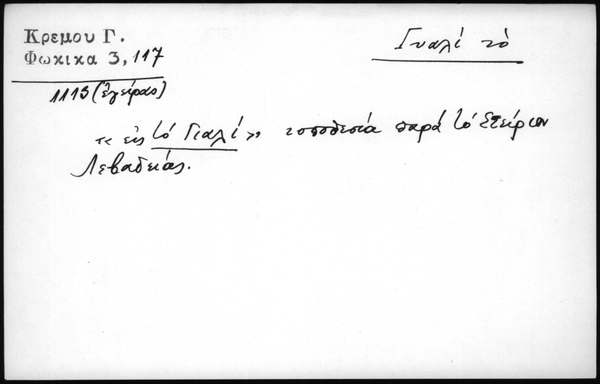 Κρεμου Γ.
Φωκικα 3, 117
Γυαλί τό
1113 (ἔγγραφο)
"εἰς τό Γιαλί" τοποθεσία παρά τό Στείριον
Λεβαδειάς.